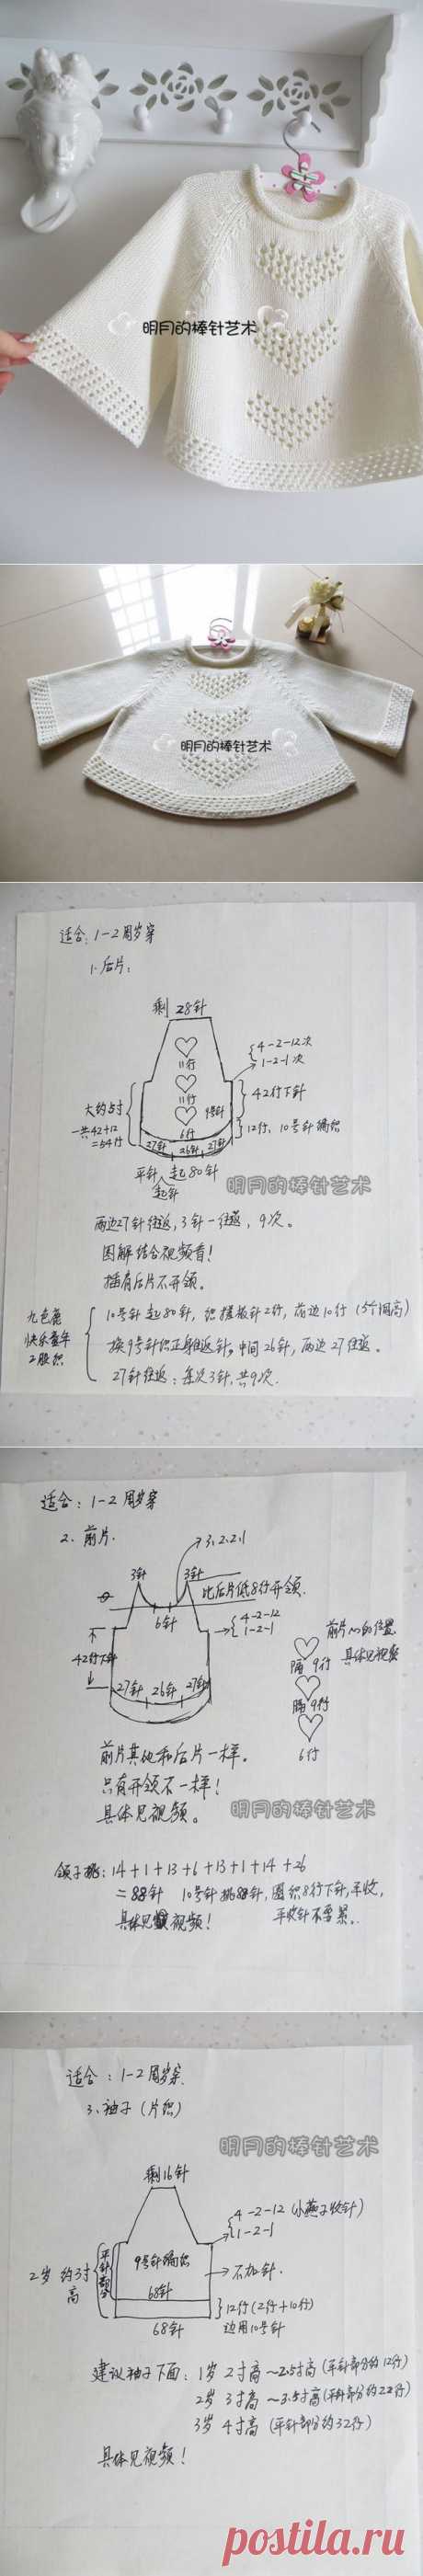 明月的棒针艺术
明月的棒针艺术
适合：1-2周岁穿
1. 后片：
剩 28针
{4-2-12次
1-2-1次
11行
11行
大约5寸
一共42+12
=54行
9号针
42行下针
6行
12行，10号针编织
27针 26针 27针
平针 起80针
起针
明月的棒针艺术
两边27针往返，3针一往返，9次。
图解结合视频看！
插肩后片不开领。
九色鹿
快乐童年
2股织
10号针起80针，织搓板针2行，花边10行（5个洞高）
换9号针织正身往返针，中间26针，两边27往返。
27针往返：每次3针，共9次.
适合：1-2周岁穿
2. 前片.
3.2.2.1
3针 3针
比后片低8行开领.
6针
{4-2-12
1-2-1
42行下针
27针 26针 27针
前片心的位置
具体见视频
隔 9行
隔 9行
6行
前片其他和后片一样。
只有开领不一样！
具体见视频。
明月的棒针艺术
领子挑：14+1+13+6+13+1+14+26
=88针 10号针挑88针，圈织8行下针，平收，
具体见视频！ 平收针不要紧.
适合：1-2周岁穿.
3. 袖子（片织）
明月的棒针艺术
剩16针
{4-2-12（小燕子收针）
1-2-1
2岁 约3寸
高
平针部分
9号针编织
不加针.
68针
68针
}12行（2行+10行）
边用10号针
建议袖子下面：1岁 2寸高～2.5寸高（平针部分约12行）
2岁 3寸高～3.5寸高（平针部分约22行）
3岁 4寸高（平针部分约32行）
具体见视频！
postila.ru